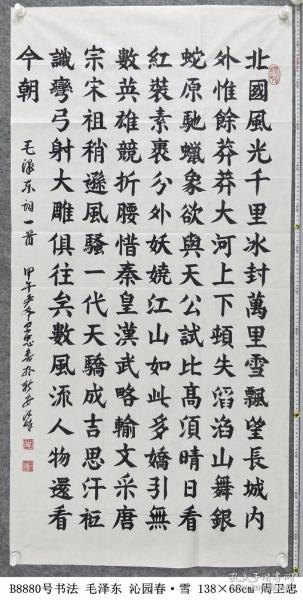 北國風光千里冰封萬里雪飄望長城内
外惟餘莽莽大河上下頓失滔滔山舞銀
蛇原馳蠟象欲與天公試比高須晴日看
紅裝素裹分外妖嬈江山如此多嬌引無
數英雄競折腰惜秦皇漢武略輸文采唐
宗宋祖稍遜風騷一代天驕成吉思汗衹
識彎弓射大雕俱往矣數風流人物還看
今朝
毛澤东词一首 甲午
B8880号书法 毛泽东 沁园春·雪 138×68cm 周卫忠